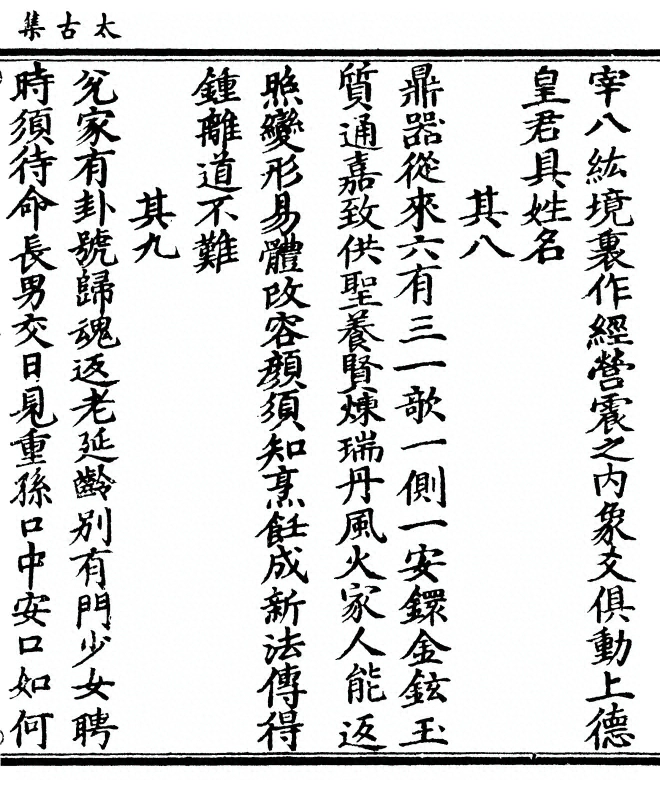 太古集
宰八紘境裏作經營震之內象爻俱動上德
皇君具姓名
其八
鼎器從來六有三一歌一側一安鐶金鉉玉
質通嘉致供聖養賢煉瑞丹風火家人能返
照變形易體改容顔須知烹飪成新法傳得
鍾離道不難
其九
兊家有卦號歸魂返老延齡別有門少女聘
時須待命長男交日見重孫口中安口如何